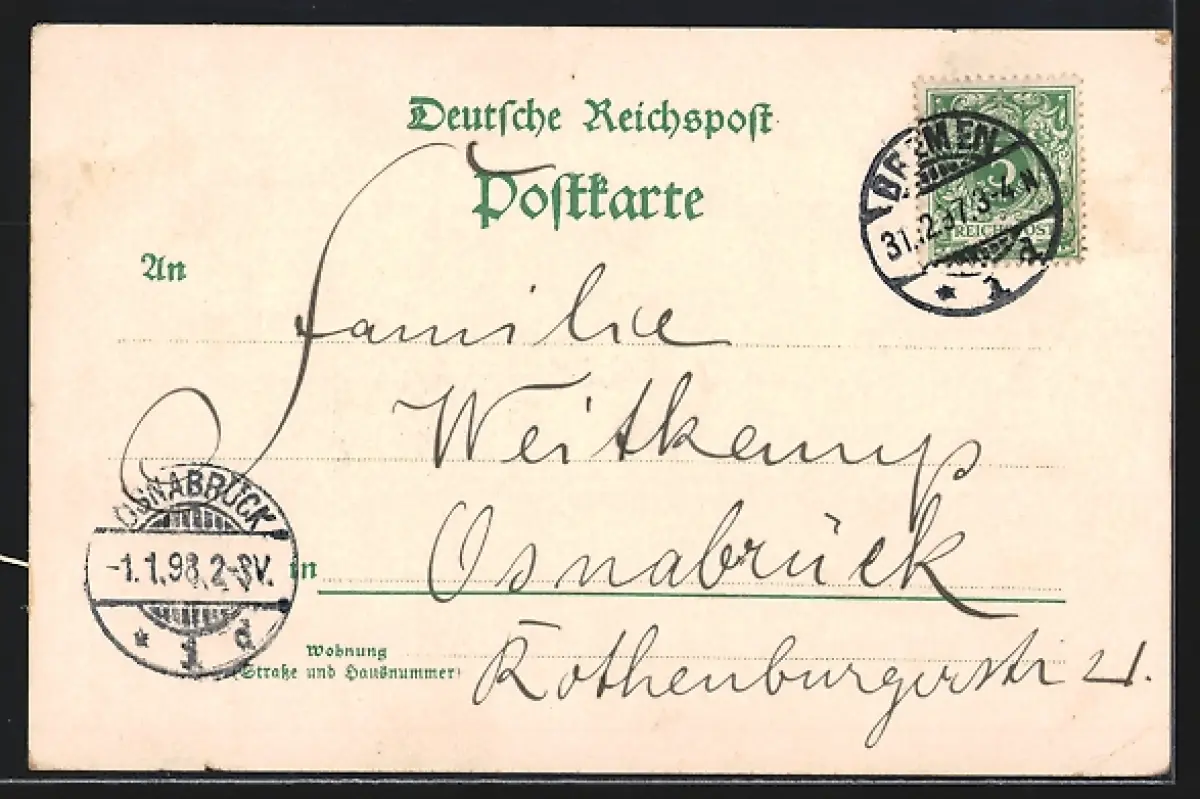 Deutsche Reichspost
Postkarte
BREMEN
31.12.97.3-4N
* 1 a
5
REICHSPOST
An
Familie
Weitkamp
OSNABRÜCK
-1.1.98.2-3V.
* 1 d
in Osnabrück
Wohnung
(Straße und Hausnummer)
Rothenburgerstr 21.